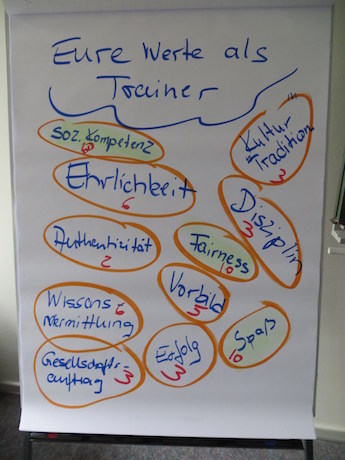 Eure Werte als
Trainer
soz. Kompetenz
Kultur
Tradition
3
Ehrlichkeit
6
Disziplin
3
Authentizität
2
Fairness
10
Vorbild
5
Wissens-
vermittlung
6
Spaß
10
Erfolg
3
Gesellschafts-
auftrag
3